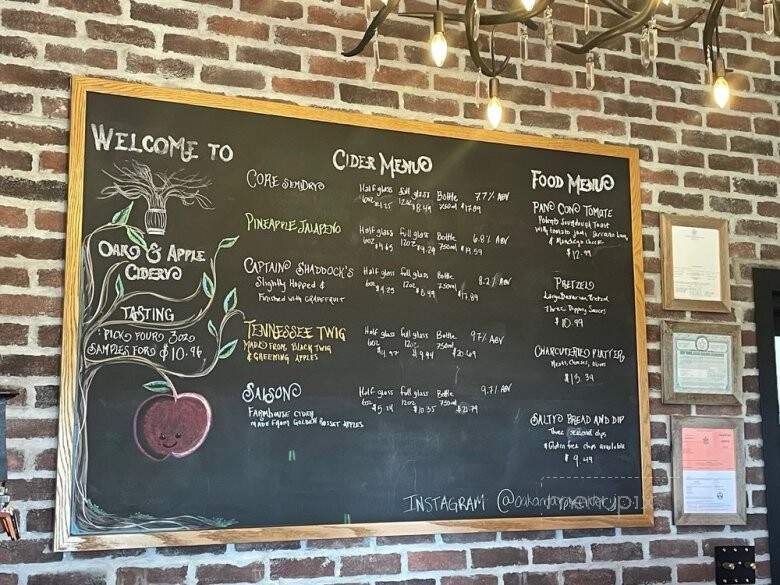 WELCOME TO
OAK & APPLE
CIDERY
TASTING
PICK YOUR 3oz
SAMPLES FOR $10.96
CIDER MENU
CORE SEMIDRY
Half glass full glass Bottle 7.7% ABV
6oz 12oz 750ml
$8.49 $17.89
PINEAPPLE JALAPENO
Half glass full glass Bottle 6.8% ABV
6oz 12oz 750ml
$4.65 $9.29 $19.59
CAPTAIN SHADDOCK'S
Slightly Hopped &
Finished with GRAPEFRUIT
Half glass full glass Bottle 8.2% ABV
6oz 12oz 750ml
$4.25 $8.49 $17.89
TENNESSEE TWIG
MADE FROM BLACK TWIG
& GREENING APPLES
Half glass full glass Bottle 9.7% ABV
6oz 12oz 750ml
$4.97 $9.94 $20.69
SAISON
FARMHOUSE CIDER
MADE FROM GOLDEN RUSSET APPLES
Half glass full glass Bottle 9.7% ABV
6oz 12oz 750ml
$5.19 $10.35 $21.79
FOOD MENU
PAN CON TOMATE
Potato Sourdough Toast
with tomato jam, Serrano ham,
& Manchego cheese
$12.99
PRETZEL
Large Bavarian Pretzel
Three Dipping Sauces
$10.99
CHARCUTERIE PLATTER
Meats, Cheeses, Olives
$13.39
SALTY BREAD AND DIP
Three seasonal dips
*Gluten free chips available
$9.49
INSTAGRAM